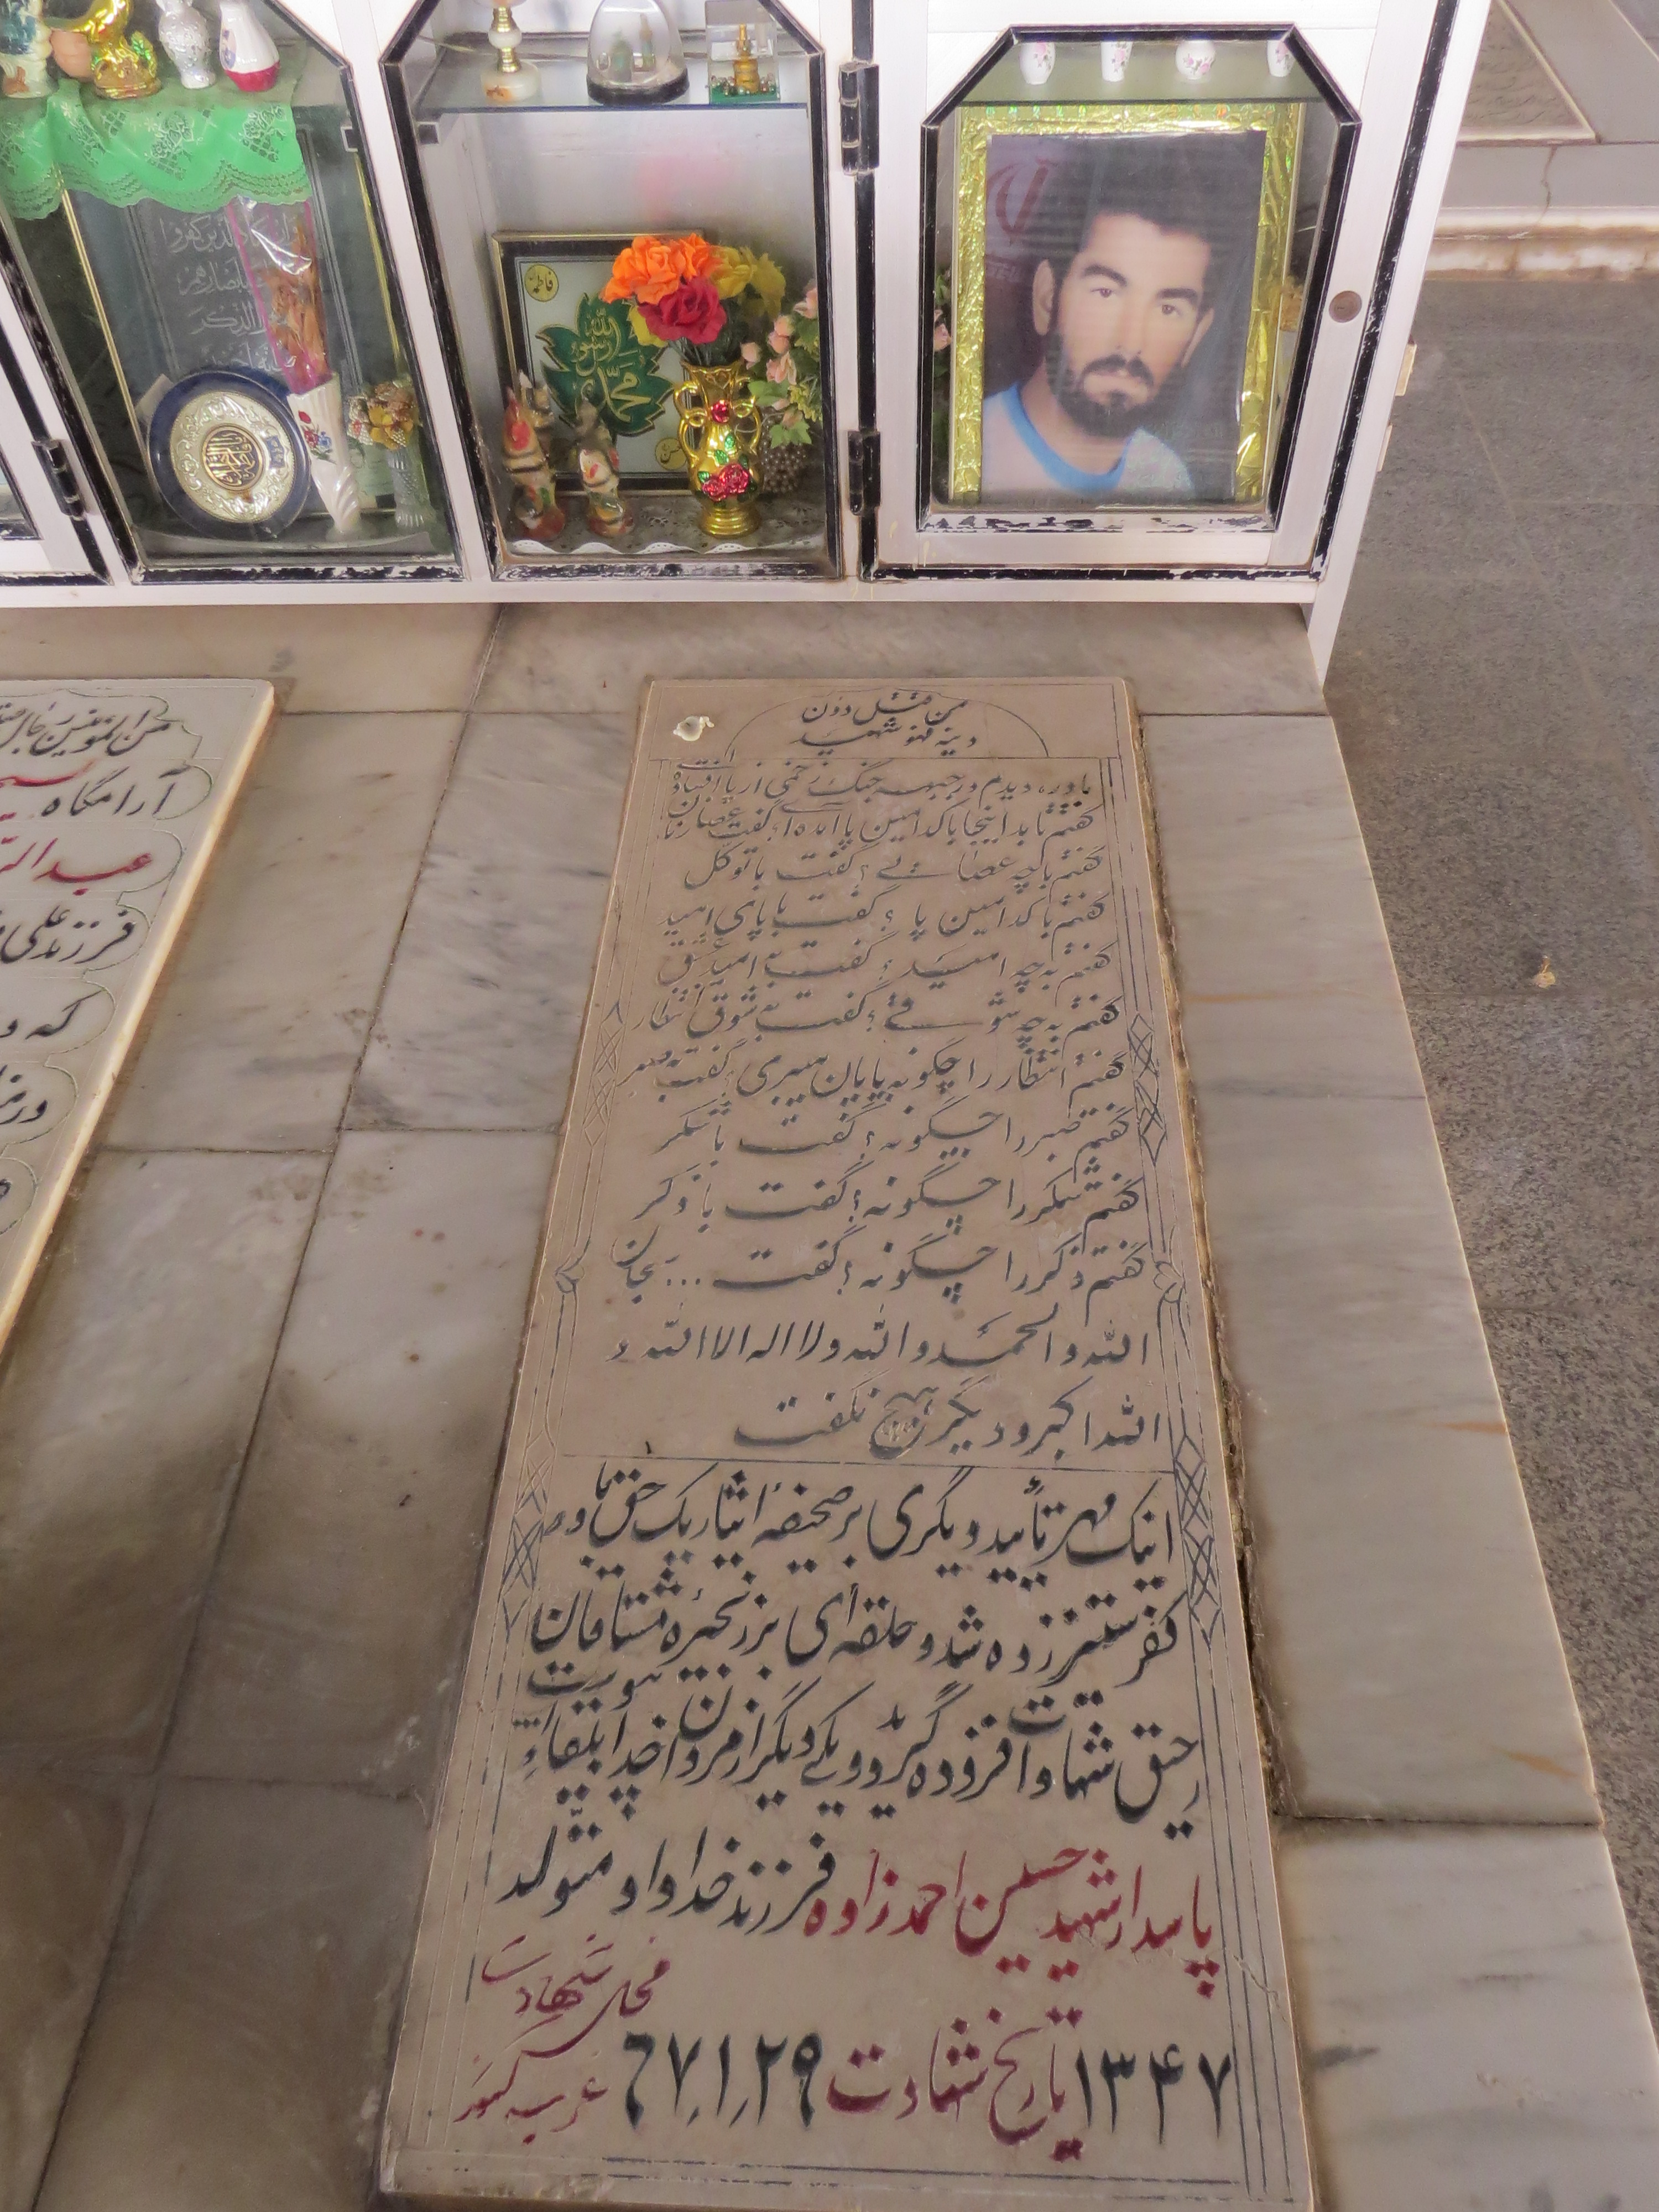 من قتل دون
دینه فهو شهید
مادر، دیدم در جبهه جنگ زخمی از پا افتاده
گفتم تا بداینجا با کدامین پا آمده‌ای؟ گفت عصا زنان
گفتم با چه عصائی؟ گفت با توکل
گفتم با کدامین پا؟ گفت با پای امید
گفتم به چه امید؟ گفت به امید عشق
گفتم به چه شوقی؟ گفت به شوق انتظار
گفتم انتظار را چگونه بپایان میبری؟ گفت صبر
گفتم صبر را چگونه؟ گفت با شکر
گفتم شکر را چگونه؟ گفت با ذکر
گفتم ذکر را چگونه؟ گفت ... سبحان
الله والحمد والله ولا اله الا الله و
الله اکبر و دیگر هیچ نگفت
اینک مهر تأیید دیگری بر صحیفهٔ ایثار یک حق باور
کفرستیز زده شد و حلقه‌ای بر زنجیرهٔ مشتاقان
رحیق شهادت افزوده گردید و یکی دیگر از مردان خدا بلقاء
پاسدار شهید حسین احمدزاده فرزند خداداد متولد
۱۳۴۷ تاریخ شهادت ۶۷/۱/۲۹
محل شهادت
من المؤمنین رجال
آرامگاه
فرزند علی
که در
الله
رسول
محمد
فاطمه